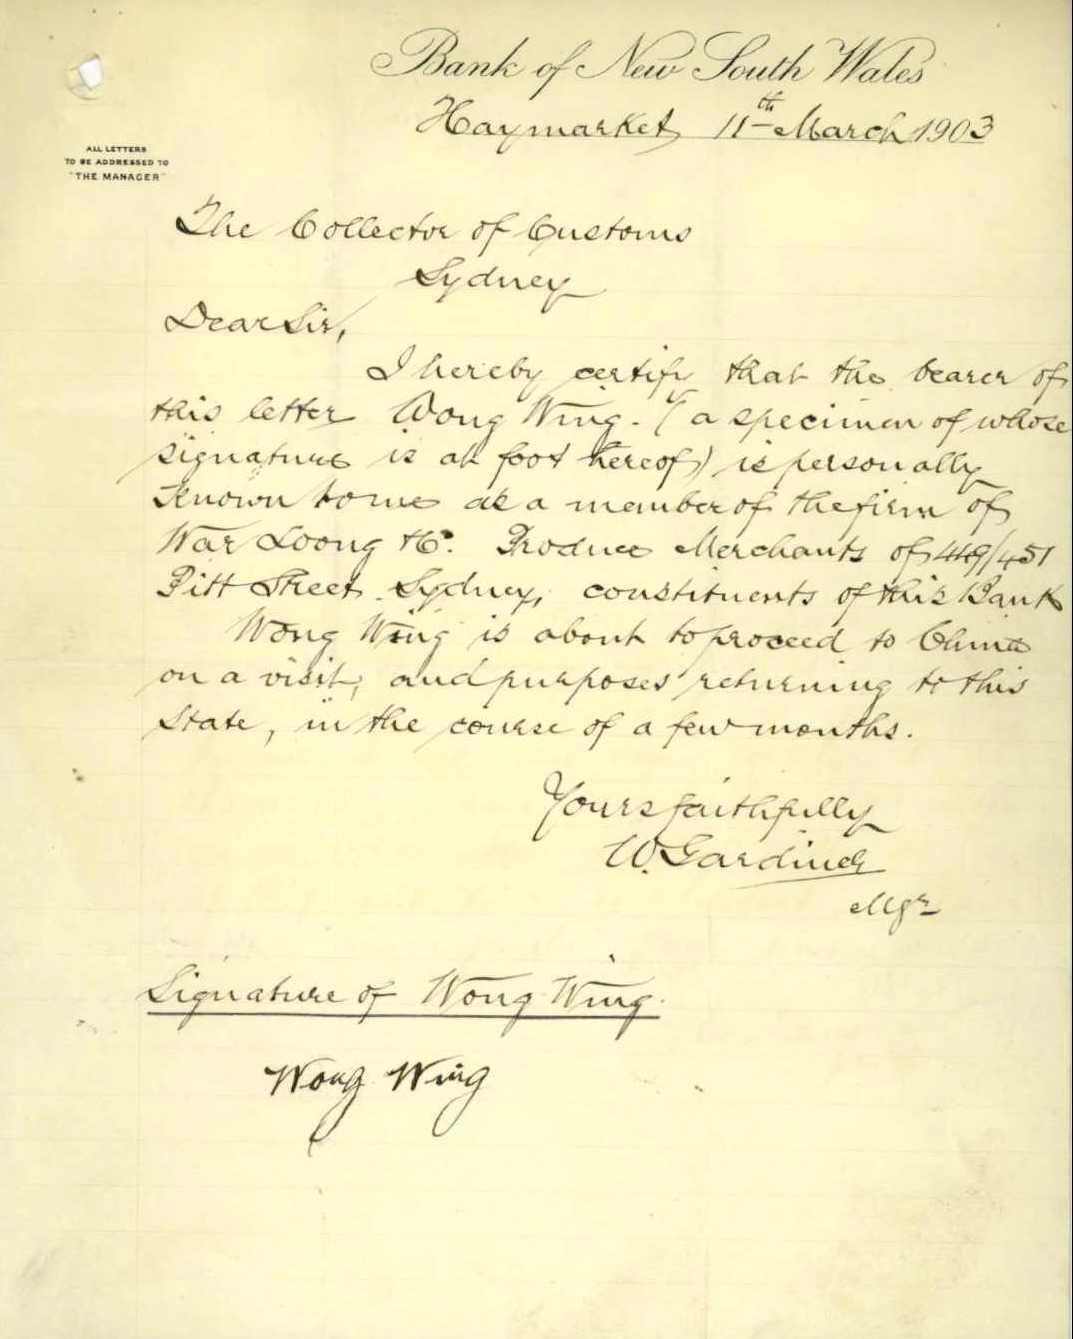 Bank of New South Wales
Haymarket 11th March 1903
ALL LETTERS
TO BE ADDRESSED TO
"THE MANAGER"
The Collector of Customs
Sydney
Dear Sir,
I hereby certify that the bearer of
this letter Wong Wing. (a specimen of whose
signature is at foot hereof) is personally
known to me as a member of the firm of
War Loong & Co. Produce Merchants of 449/451
Pitt Street Sydney, constituents of this Bank
Wong Wing is about to proceed to China
on a visit, and purposes returning to this
State, in the course of a few months.
Yours faithfully
W. Gardiner
Mgr
Signature of Wong Wing.
Wong Wing